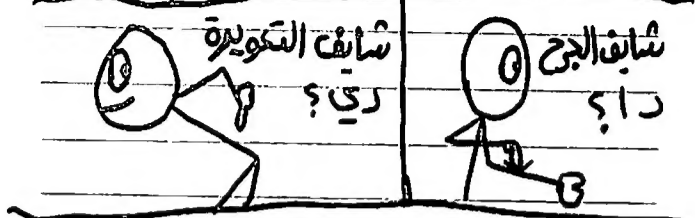 شايف الجرح
دا؟
شايف التعويرة
دي؟